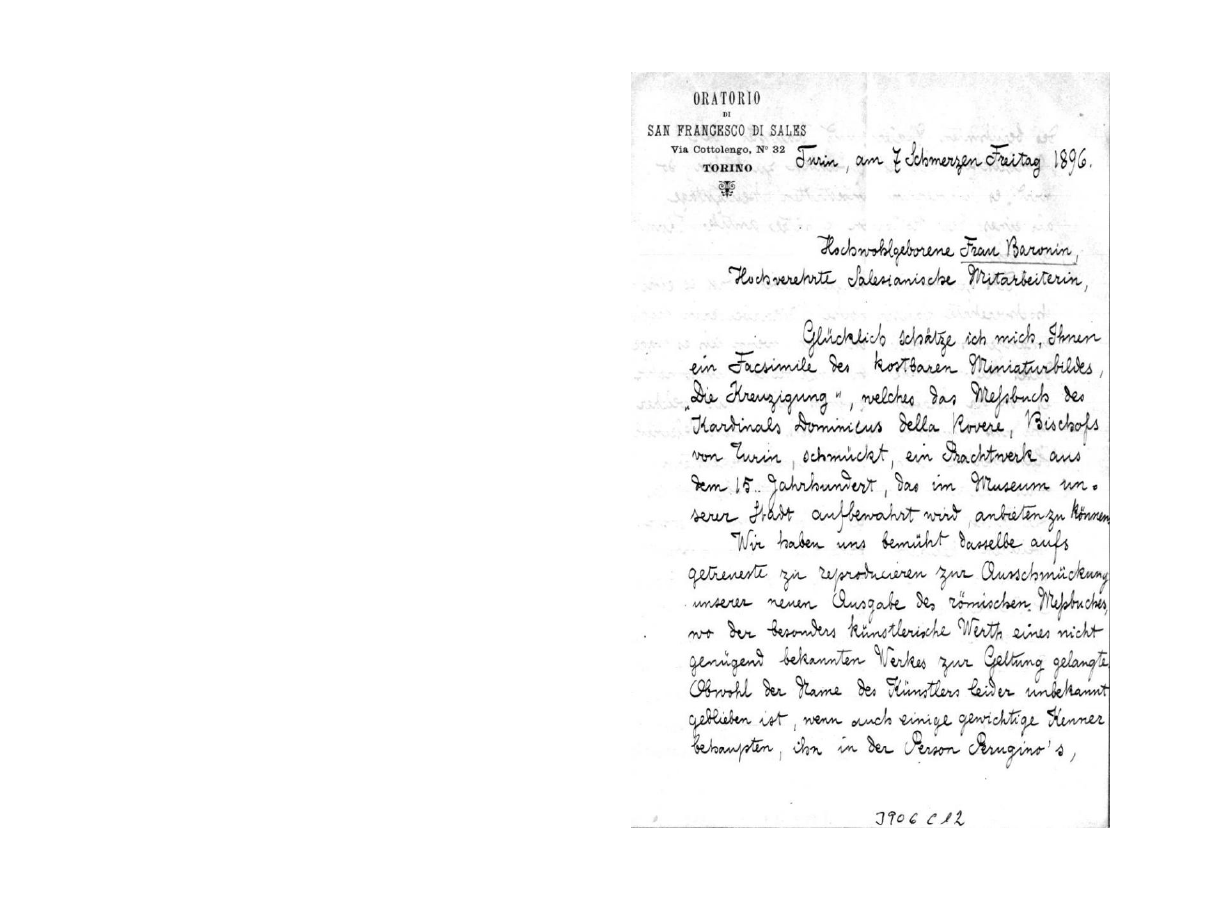 ORATORIO
DI
SAN FRANCESCO DI SALES
Via Cottolengo, N° 32
TORINO
Turin, am 7 Schmerzen Freitag 1896.
Hochwohlgeborene Frau Baronin,
Hochverehrte Salesianische Mitarbeiterin,
Glücklich schätze ich mich, Ihnen
ein Facsimile des kostbaren Miniaturbildes,
„Die Kreuzigung", welches das Meßbuch des
Kardinals Dominicus della Rovere, Bischofs
von Turin, schmückt, ein Prachtwerk aus
dem 15. Jahrhundert, das im Museum un-
serer Stadt aufbewahrt wird, anbieten zu können.
Wir haben uns bemüht dasselbe aufs
getreueste zu reproducieren zur Ausschmückung
unserer neuen Ausgabe des römischen Meßbuches,
wo der besonders künstlerische Werth eines nicht
genügend bekannten Werkes zur Geltung gelangte.
Obwohl der Name des Künstlers leider unbekannt
geblieben ist, wenn auch einige gewichtige Kenner
behaupten, ihn in der Person Perugino's,
3906 C 12